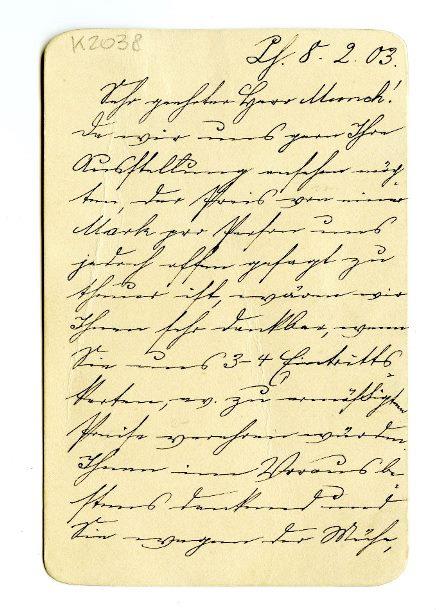 K2038
Ch. 8. 2. 03.
Sehr geehrter Herr Munch!
Da wir uns gern Ihre
Ausstellung ansehen möch-
ten, der Preis von einer
Mark pro Person uns
jedoch offen gesagt zu
theuer ist, wären wir
Ihnen sehr dankbar, wenn
Sie uns 3-4 Eintritts-
karten, ev. zu ermäßigten
Preise verehren würden.
Ihnen im Voraus be-
stens dankend und
Sie wegen der Mühe,